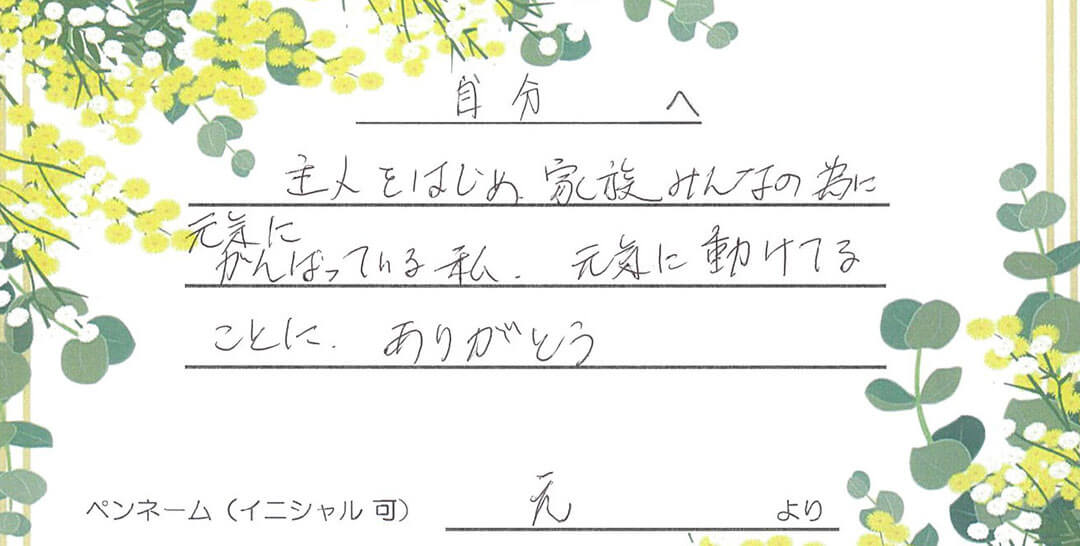 自分 へ
主人をはじめ、家族みんなの為に
元気に
がんばっている私、元気に動けてる
ことに、ありがとう
ペンネーム（イニシャル 可） 元 より